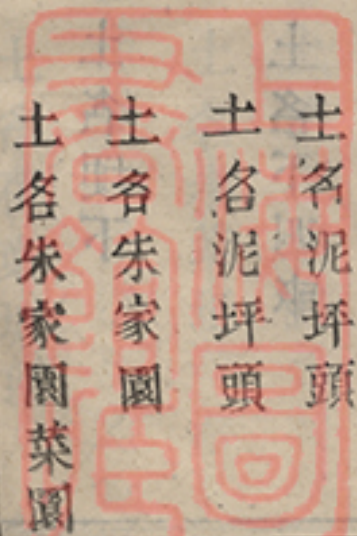 土名泥坪頭
土名泥坪頭
土名朱家園
土名朱家園菜園